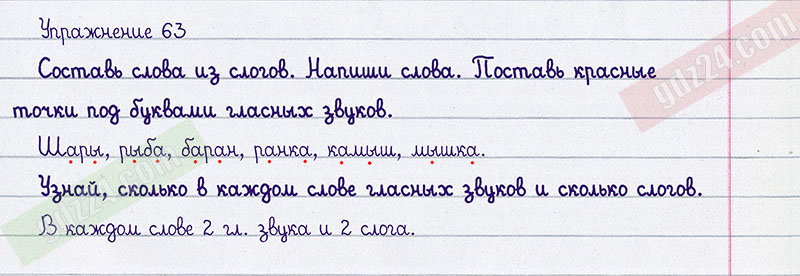 Упражнение 63
Составь слова из слогов. Напиши слова. Поставь красные
точки под буквами гласных звуков.
Шары, рыба, баран, ранка, камыш, мышка.
Узнай, сколько в каждом слове гласных звуков и сколько слогов.
В каждом слове 2 гл. звука и 2 слога.
gdz24.com
gdz24.com